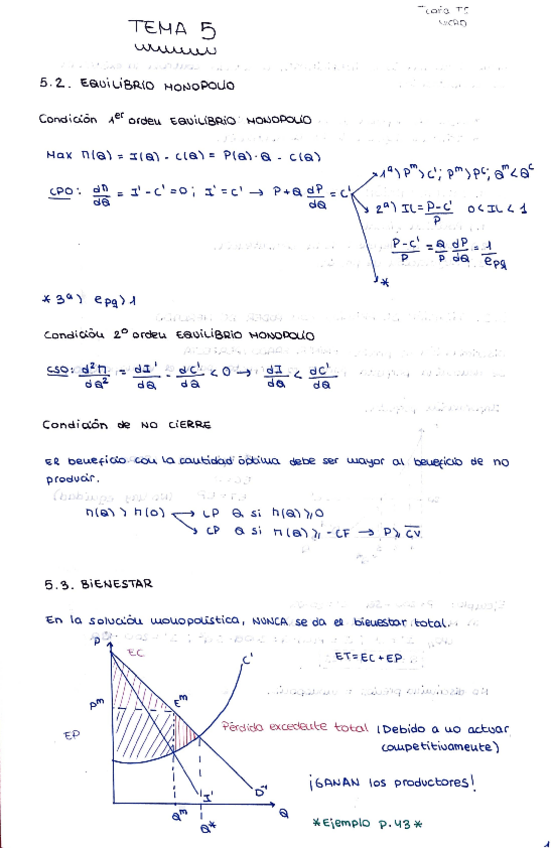 Teoría T5
MICRO
TEMA 5
5.2. EQUILIBRIO MONOPOLIO
Condición 1er orden EQUILIBRIO MONOPOLIO
Max Π(Q) = I(Q) - C(Q) = P(Q)·Q - C(Q)
CPO: dΠ/dQ = I' - C' = 0 ; I' = C' → P + Q dP/dQ = C'
1ª) Pᵐ > C' ; Pᵐ > Pᶜ ; Qᵐ < Qᶜ
2ª) IL = P-C'/P 0 < IL < 1
P-C'/P = Q/P dP/dQ = 1/ePQ
*
* 3ª) ePQ > 1
Condición 2º orden EQUILIBRIO MONOPOLIO
CSO: d²Π/dQ² = dI'/dQ - dC'/dQ < 0 → dI/dQ < dC'/dQ
Condición de NO CIERRE
El beneficio con la cantidad óptima debe ser mayor al beneficio de no
producir.
Π(Q) > Π(0) → LP Q si Π(Q) ≥ 0
→ CP Q si Π(Q) ≥ -CF → P ≥ CV̅
5.3. BIENESTAR
En la solución monopolística, NUNCA se da el bienestar total.
P
EC
C'
ET = EC + EP
Pᵐ
Eᵐ
EP
Pérdida excedente total (Debido a no actuar
competitivamente)
¡GANAN los productores!
I'
D⁻¹
Q
Qᵐ
Q*
*Ejemplo p.43*